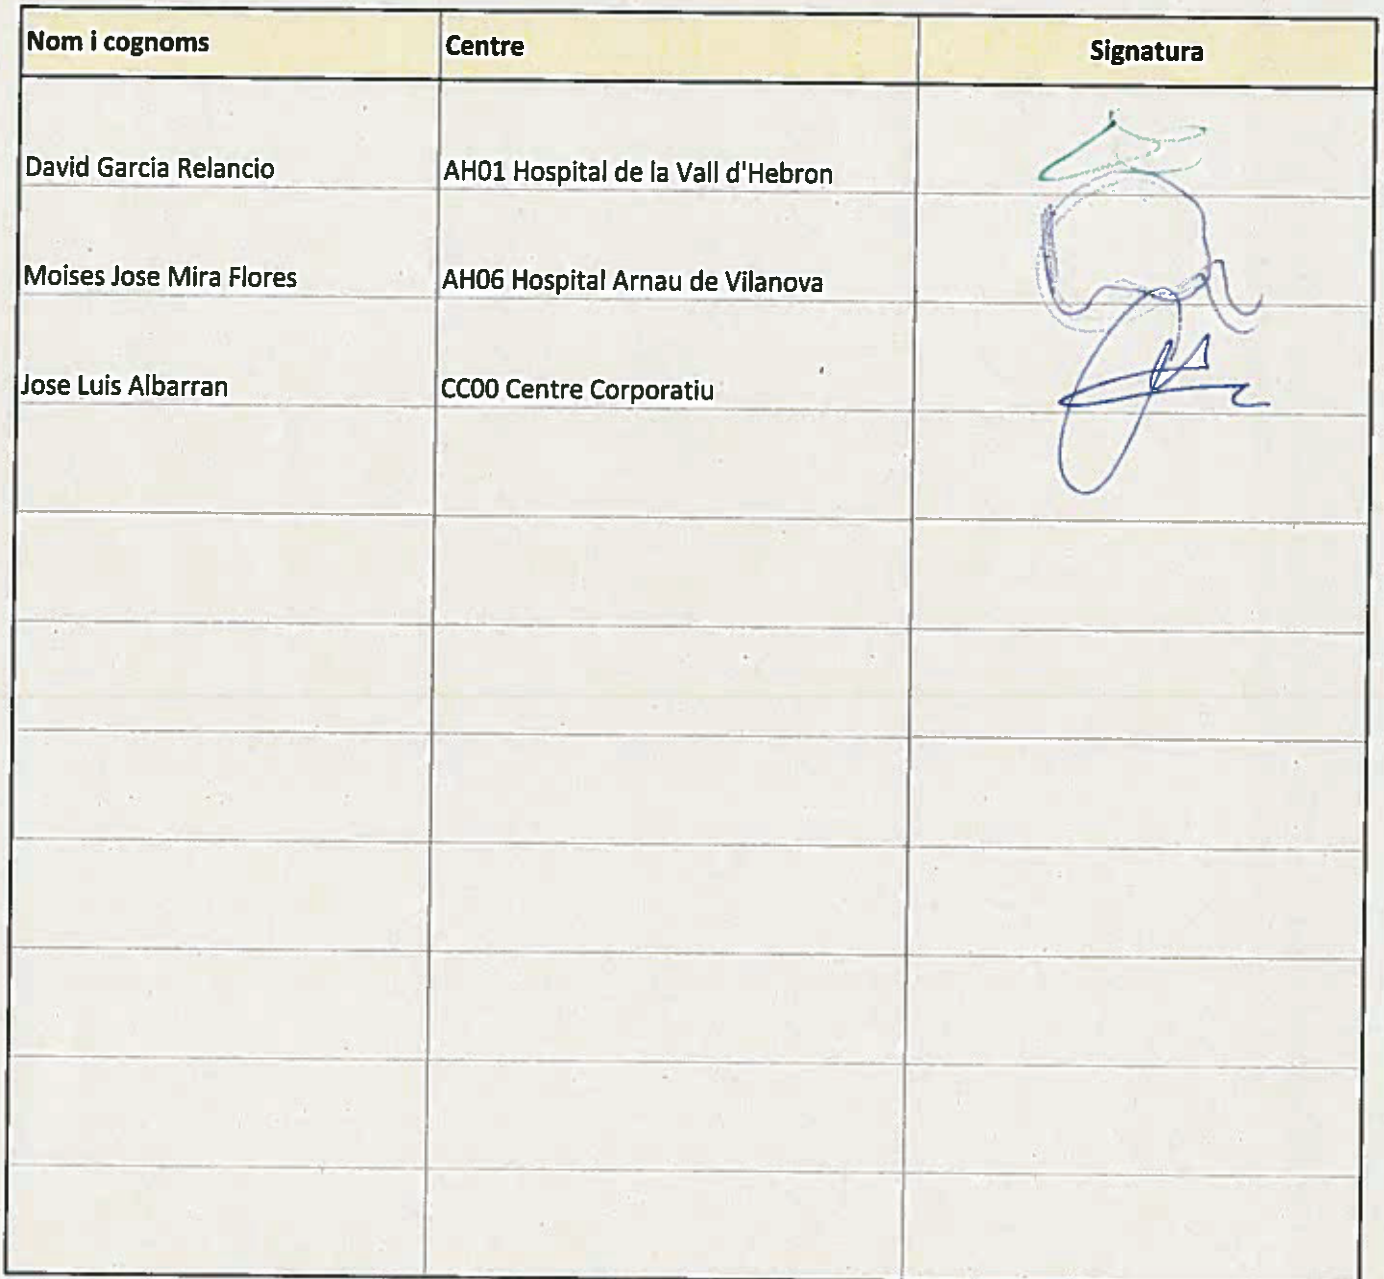 Nom i cognoms Centre Signatura
David Garcia Relancio AH01 Hospital de la Vall d'Hebron
Moises Jose Mira Flores AH06 Hospital Arnau de Vilanova
Jose Luis Albarran CC00 Centre Corporatiu